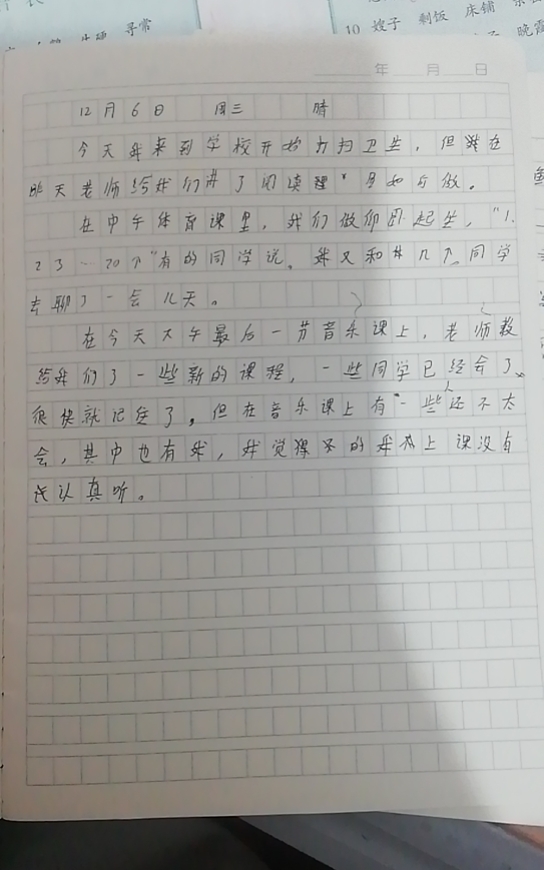 寻常
10 嫂子 剩饭 床铺
晚霞
年 月 日
12月6日 周三 晴
今天我来到学校开始打扫卫生，但我在
昨天老师给我们讲了阅读理
在中午体育课里，我们做仰卧起坐，“1.
2 3 … 20个”有的同学说、我又和其几个同学
去聊了一会儿天。
在今天下午最后一节音乐课上，老师教
给我们了一些新的课程，一些同学已经会了、
很快就记住了，但在音乐课上有一些人还不太
会，其中也有我，我觉得
上课没有
认真听。